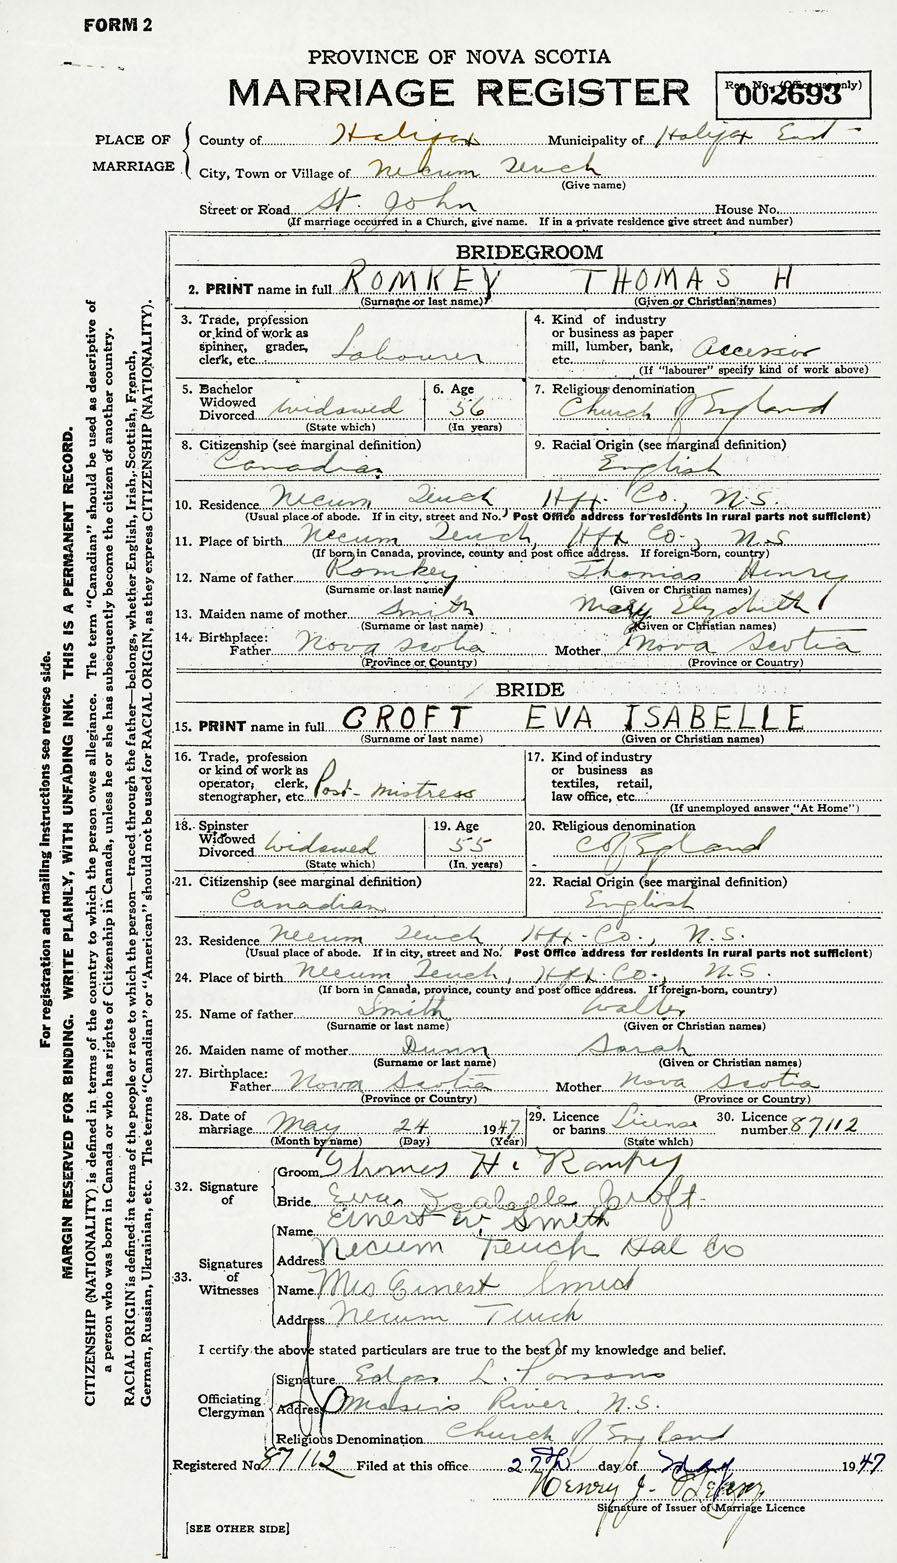 FORM 2
PROVINCE OF NOVA SCOTIA
MARRIAGE REGISTER
Reg. No. (Office use only)
002693
PLACE OF MARRIAGE
County of Halifax Municipality of Halifax East
City, Town or Village of Necum Teuch
(Give name)
Street or Road St. John House No.
(If marriage occurred in a Church, give name. If in a private residence give street and number)
BRIDEGROOM
2. PRINT name in full ROMKEY THOMAS H
(Surname or last name) (Given or Christian names)
3. Trade, profession or kind of work as spinner, grader, clerk, etc. Labourer
4. Kind of industry or business as paper mill, lumber, bank, etc. Accessor
(If "labourer" specify kind of work above)
5. Bachelor Widowed Divorced widowed
(State which)
6. Age 56
(In years)
7. Religious denomination Church of England
8. Citizenship (see marginal definition)
Canadian
9. Racial Origin (see marginal definition)
English
10. Residence Necum Teuch Hfx. Co., N.S.
(Usual place of abode. If in city, street and No. Post Office address for residents in rural parts not sufficient)
11. Place of birth Necum Teuch, Hfx Co., N.S
(If born in Canada, province, county and post office address. If foreign-born, country)
12. Name of father Romkey Thomas Henry
(Surname or last name) (Given or Christian names)
13. Maiden name of mother Smith Mary Elizabeth
(Surname or last name) (Given or Christian names)
14. Birthplace:
Father Nova Scotia Mother Nova Scotia
(Province or Country) (Province or Country)
BRIDE
15. PRINT name in full CROFT EVA ISABELLE
(Surname or last name) (Given or Christian names)
16. Trade, profession or kind of work as operator; clerk, stenographer, etc. Post-mistress
17. Kind of industry or business as textiles, retail, law office, etc.
(If unemployed answer "At Home")
18. Spinster Widowed Divorced widowed
(State which)
19. Age 55
(In years)
20. Religious denomination
C of England
21. Citizenship (see marginal definition)
Canadian
22. Racial Origin (see marginal definition)
English
23. Residence Necum Teuch Hfx. Co., N.S.
(Usual place of abode. If in city, street and No. Post Office address for residents in rural parts not sufficient)
24. Place of birth Necum Teuch, Hfx. Co., N.S.
(If born in Canada, province, county and post office address. If foreign-born, country)
25. Name of father Smith Walter
(Surname or last name) (Given or Christian names)
26. Maiden name of mother Dunn Sarah
(Surname or last name) (Given or Christian names)
27. Birthplace:
Father Nova Scotia Mother Nova Scotia
(Province or Country) (Province or Country)
28. Date of marriage May 24 1947
(Month by name) (Day) (Year)
29. Licence or banns License
(State which)
30. Licence number 87112
32. Signature of
Groom Thomas H. Romkey
Bride Eva Isabelle Croft
33. Signatures of Witnesses
Name Ernest W. Smith
Address Necum Teuch Hal Co
Name Mrs Ernest Smith
Address Necum Teuch
I certify the above stated particulars are true to the best of my knowledge and belief.
Officiating Clergyman
Signature Edgar L. Parsons
Address Mosers River, N.S.
Religious Denomination Church of England
Registered No. 87112 Filed at this office 27th day of May 1947
Henry J.
Signature of Issuer of Marriage Licence
[SEE OTHER SIDE]
For registration and mailing instructions see reverse side.
MARGIN RESERVED FOR BINDING. WRITE PLAINLY, WITH UNFADING INK. THIS IS A PERMANENT RECORD.
CITIZENSHIP (NATIONALITY) is defined in terms of the country to which the person owes allegiance. The term "Canadian" should be used as descriptive of
a person who was born in Canada or who has rights of Citizenship in Canada, unless he or she has subsequently become the citizen of another country.
RACIAL ORIGIN is defined in terms of the people or race to which the person—traced through the father—belongs, whether English, Irish, Scottish, French,
German, Russian, Ukrainian, etc. The terms "Canadian" or "American" should not be used for RACIAL ORIGIN, as they express CITIZENSHIP (NATIONALITY).